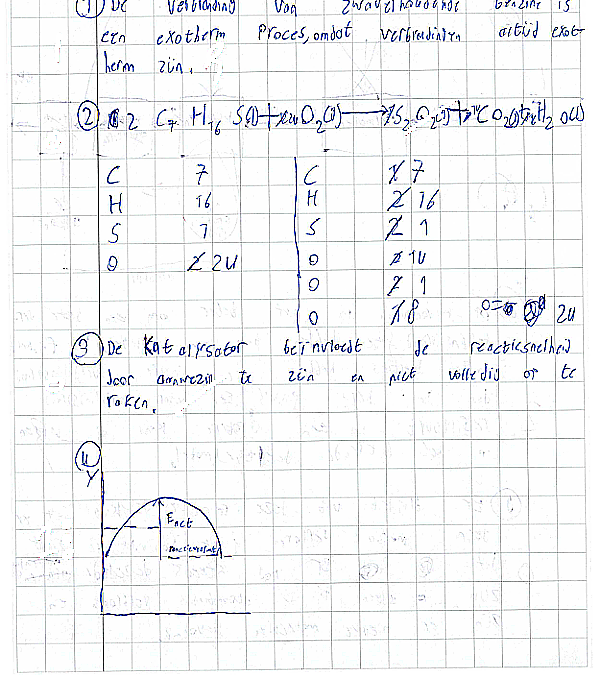 ① De verbranding van zwavelhoudende benzine is
een exotherm Proces, omdat verbrandingen altijd exot-
herm zijn.
② 2 C7 H16 S(l) + O2(g) → S2 O2(g) + CO2(g) + H2 O(l)
C 7 C 7
H 16 H 16
S 1 S 1
O 24 O
O 1
O 8 O= 24
③ De Katalysator beïnvloedt de reactiesnelheid
door aanwezig te zijn en niet volledig op te
raken.
④
Y
Eact